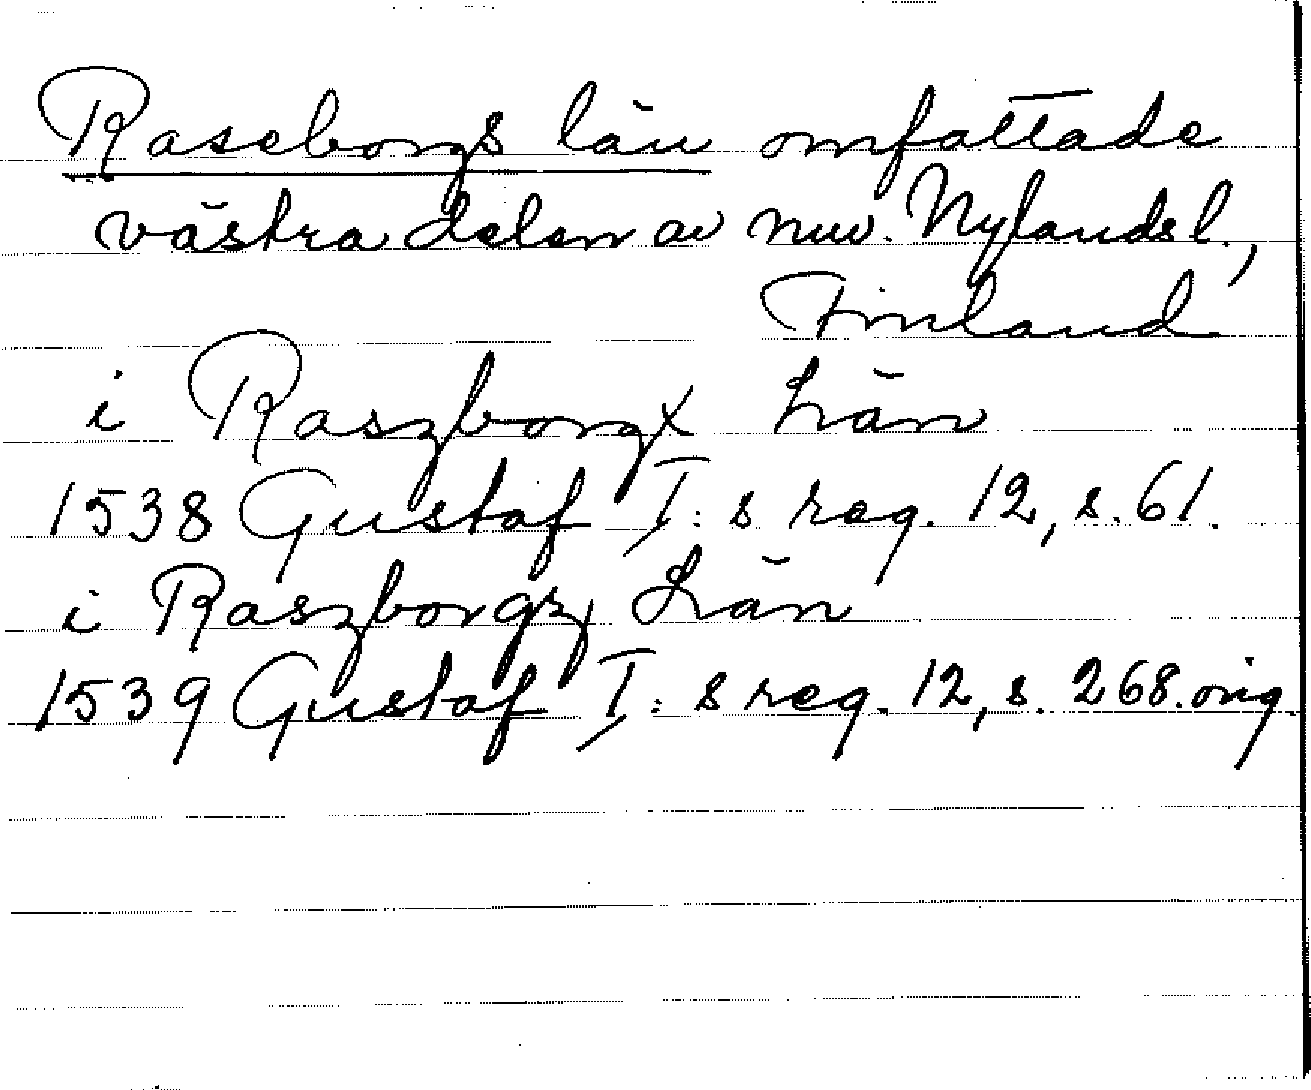 Raseborgs län omfattade
västra delen av nuv. Nylands l.,
Finland
i Raszborgx Län
1538 Gustaf I: s reg. 12, s. 61.
i Raszborgz Län
1539 Gustaf I: s reg. 12, s. 268. orig.